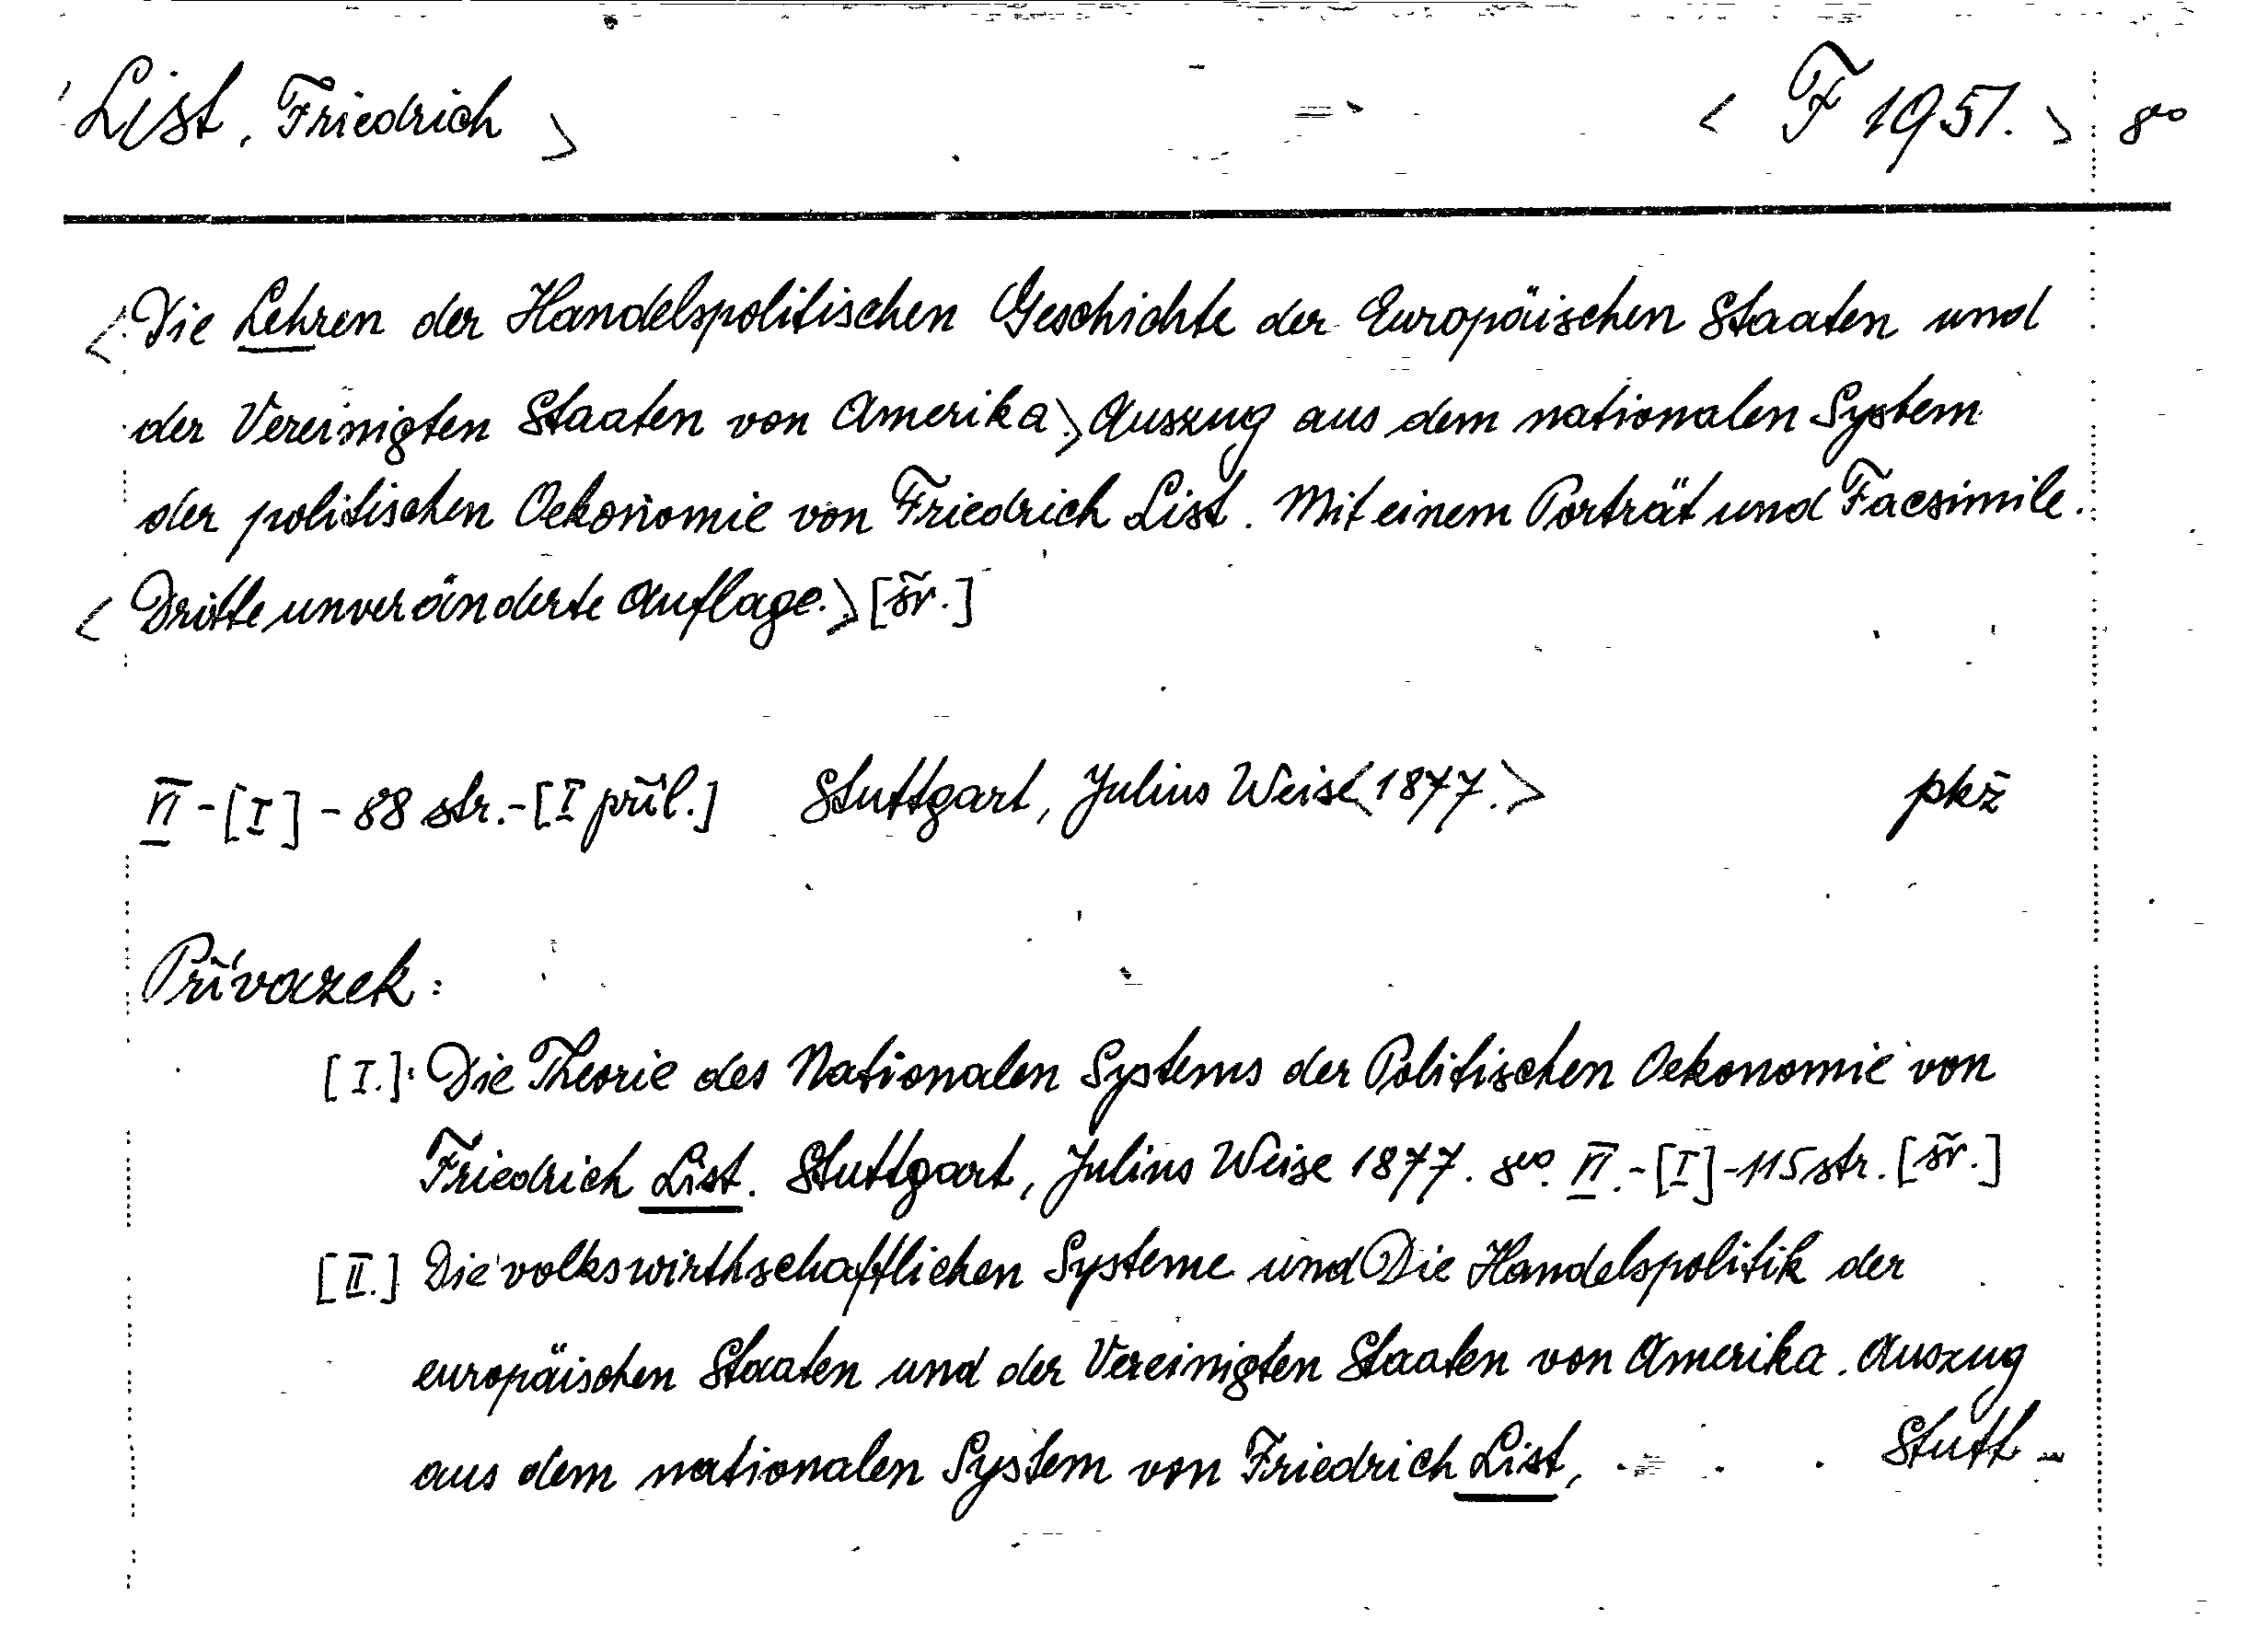 List, Friedrich > < F 1951. > 8vo
<Die Lehren der Handelspolitischen Geschichte der Europäischen Staaten und
der Vereinigten Staaten von Amerika.> Auszug aus dem nationalen System
der politischen Oekonomie von Friedrich List. Mit einem Porträt und Facsimile.
<Dritte unveränderte Auflage.> [šv.]
VI-[I]-88 str.-[I příl.] Stuttgart, Julius Weise <1877.> pkž
Přívazek:
[I.]: Die Theorie des Nationalen Systems der Politischen Oekonomie von
Friedrich List. Stuttgart, Julius Weise 1877. 8vo. VI.-[I]-115 str. [šv.]
[II.] Die volkswirthschaftlichen Systeme und Die Handelspolitik der
europäischen Staaten und der Vereinigten Staaten von Amerika. Auszug
aus dem nationalen System von Friedrich List, Stutt-